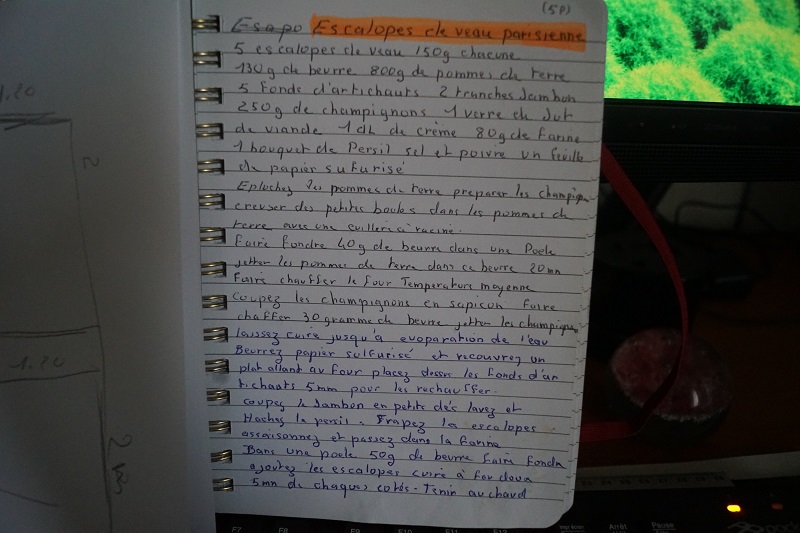 (5P)
Escalopes de veau parisienne
5 escalopes de veau 150g chacune
130g de beurre 800g de pommes de terre
5 fonds d'artichauts 2 tranches Jambon
250g de champignons 1 verre de Jut
de viande 1 dL de crème 80g de farine
1 bouquet de Persil sel et poivre un feuille
de papier sufurisé
Epluchez les pommes de terre preparer les champign
creuser des petites boules dans les pommes de
terre avec une cuillère à racine.
Faire fondre 40g de beurre dans une Poele
jetter les pommes de terre dans ce beurre 20mn
Faire chauffer le four Temperature moyenne
Coupez les champignons en salpicon faire
chaffer 30 gramme de beurre jetter les champignons
laissez cuire jusqu'à evaporation de l'eau
Beurrez papier sulfurisé et recouvrez un
plat allant au four placez dessus les fonds d'ar
tichauts 5mm pour les rechauffer.
coupez le Jambon en petits dés lavez et
Hachez le persil. Frapez la escalopes
assaisonnez et passez dans la farine
Dans une poele 50g de beurre faire fondre
ajoutez les escalopes cuire à feu doux
5mn de chaques cotés - Tenir au chaud
1.20
2
1.20
F7
F8
F9
F10
F11
F12
Arrêt
Pause